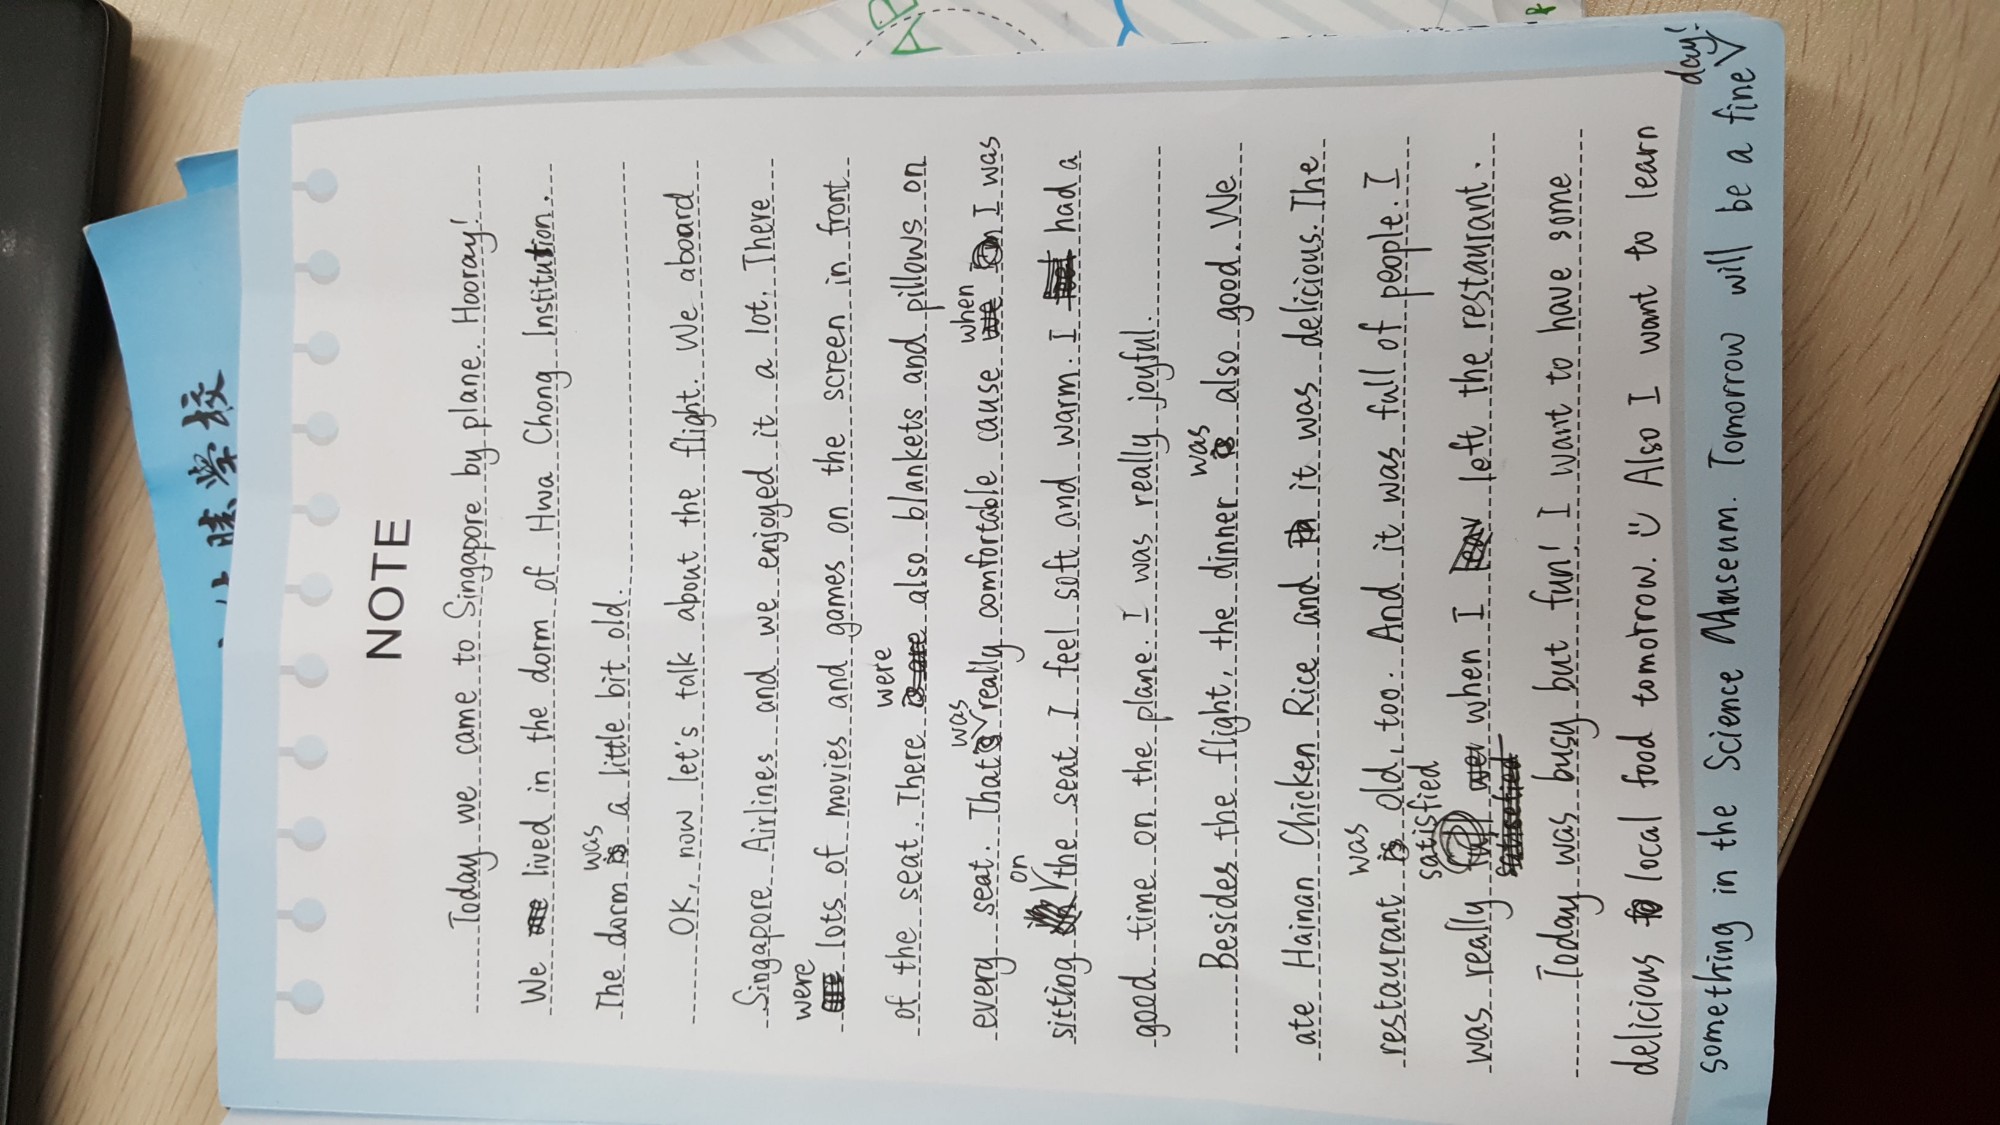 NOTE
Today we came to Singapore by plane. Hooray!
We lived in the dorm of Hwa Chong Institution.
The dorm was a little bit old.
OK, now let's talk about the flight. We aboard
Singapore Airlines and we enjoyed it a lot. There
were lots of movies and games on the screen in front
of the seat. There were also blankets and pillows on
every seat. That was really comfortable cause when I was
sitting on the seat I feel soft and warm. I had a
good time on the plane. I was really joyful.
Besides the flight, the dinner was also good. We
ate Hainan Chicken Rice and it was delicious. The
restaurant was old, too. And it was full of people. I
was really satisfied when I left the restaurant.
Today was busy but fun! I want to have some
delicious local food tomorrow. Also I want to learn
something in the Science Museum. Tomorrow will be a fine day!
学校
AB